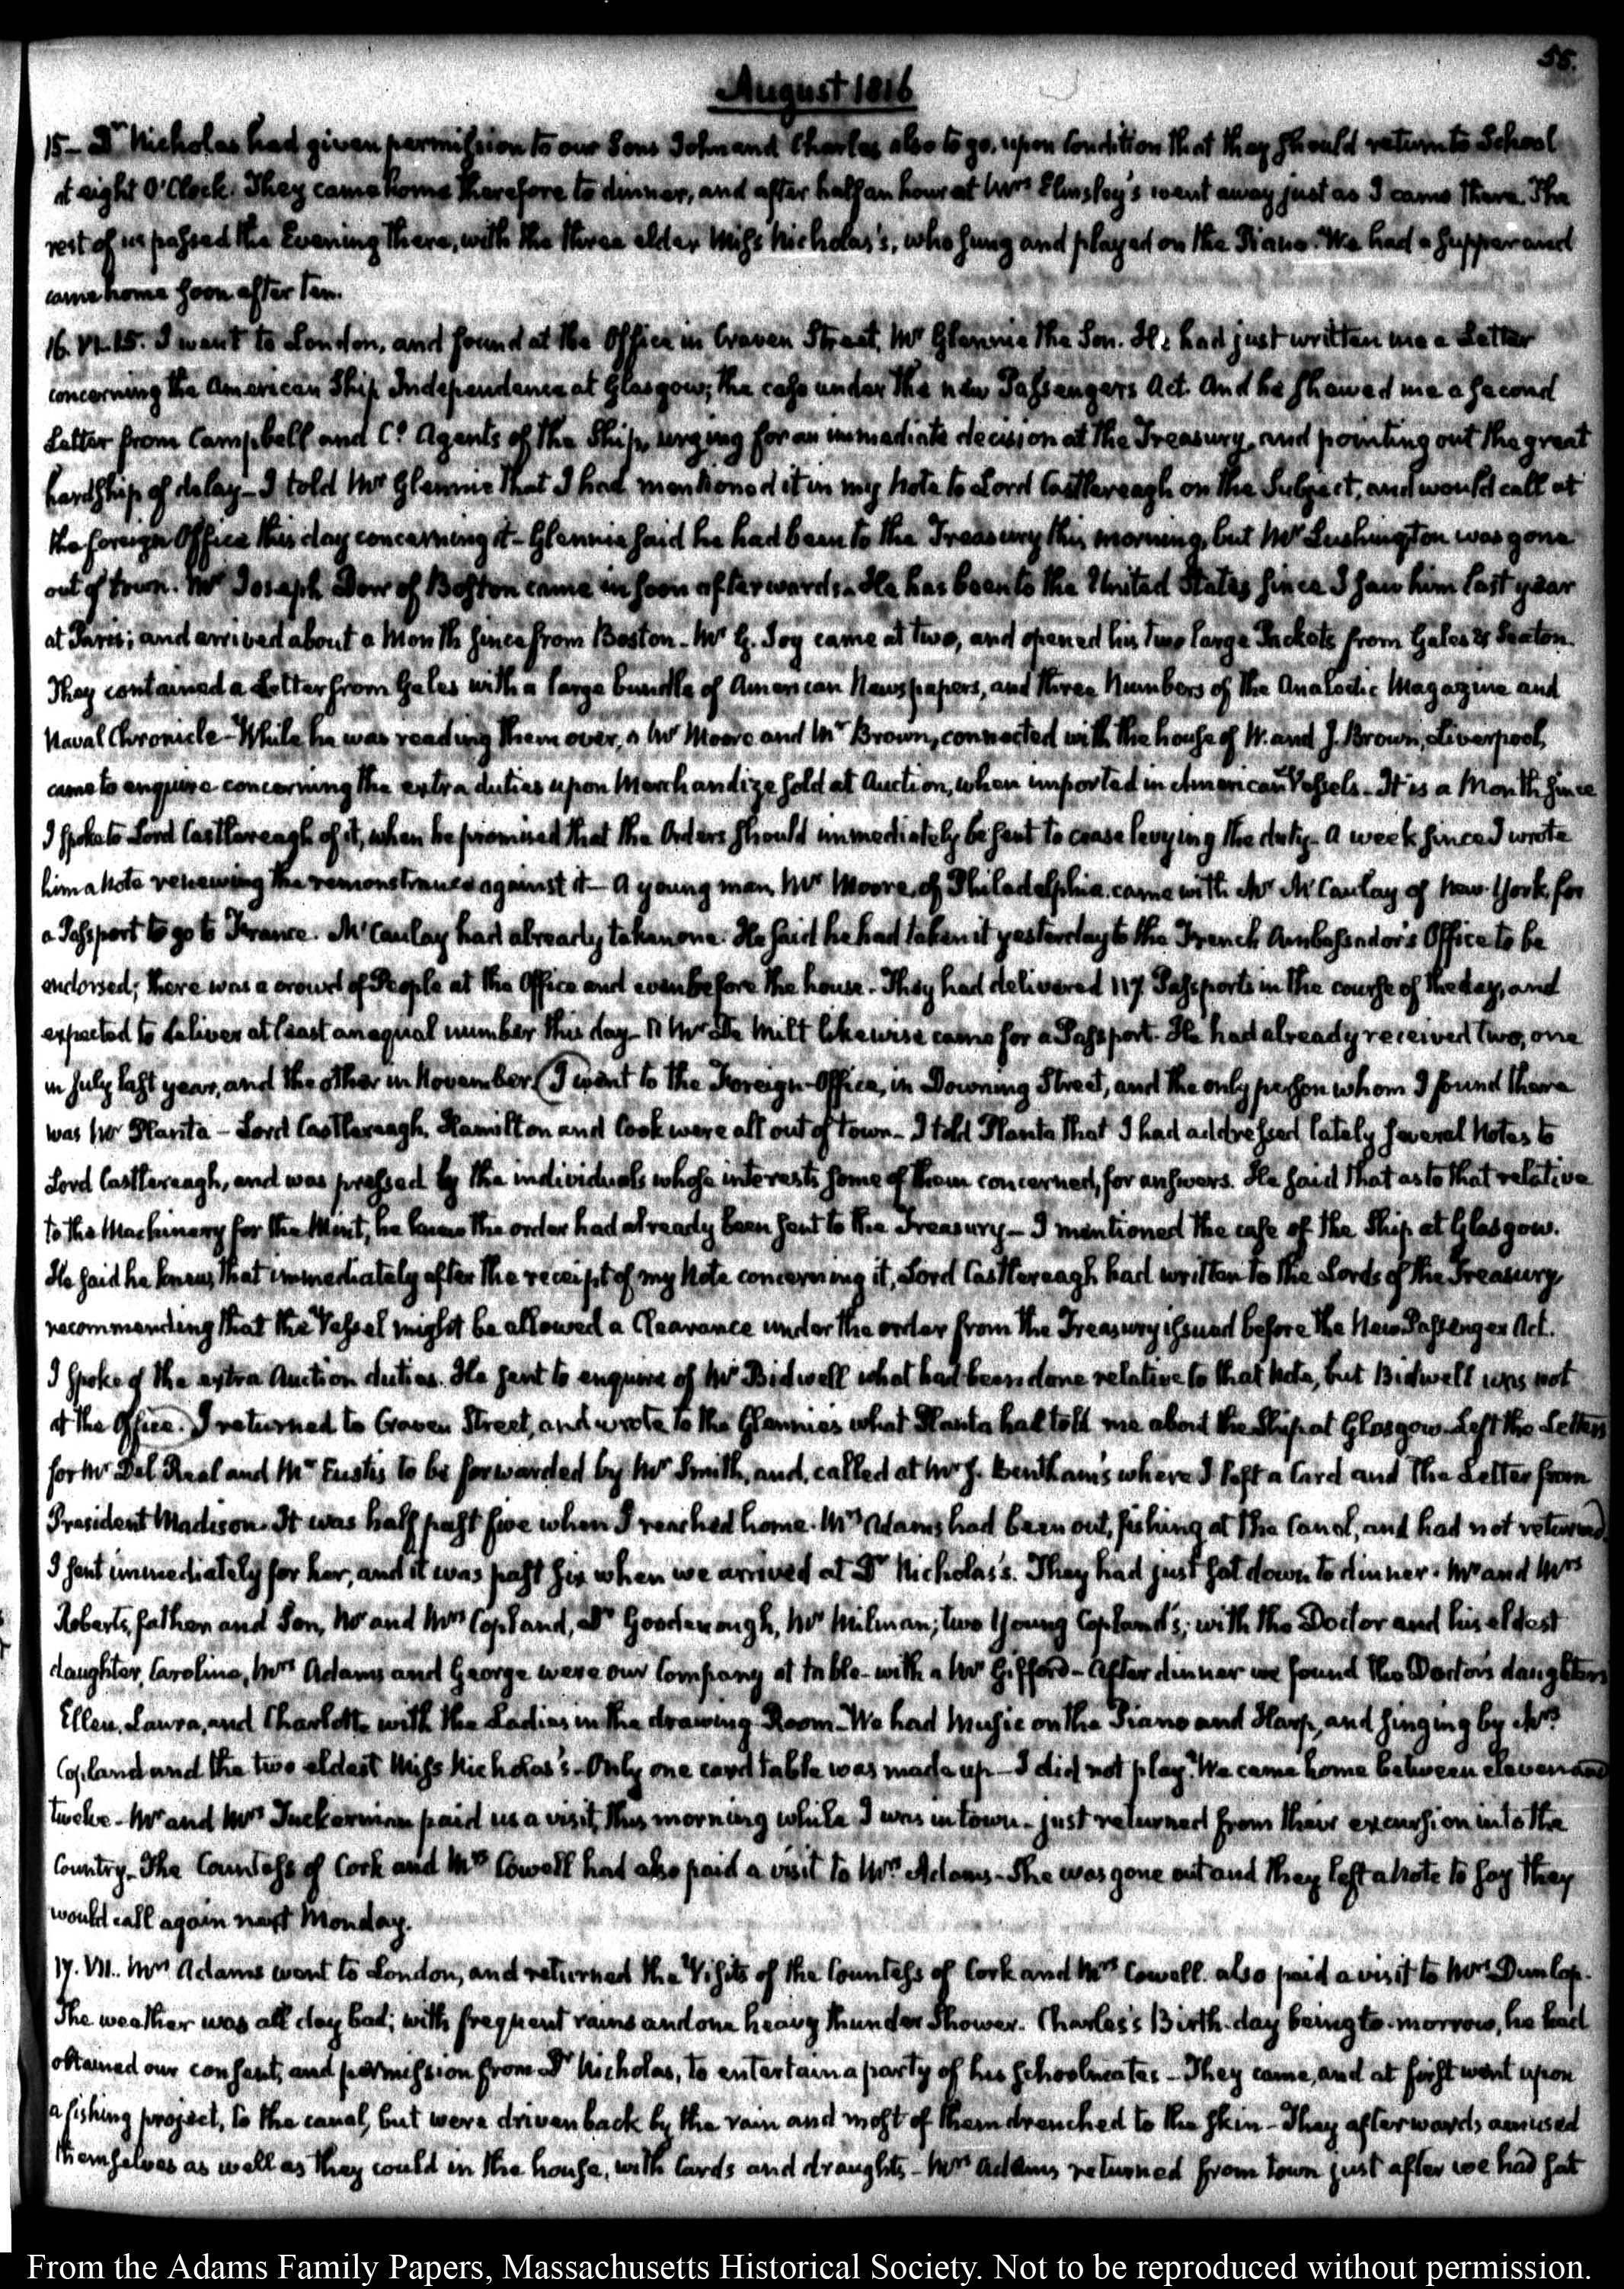 55.
August 1816
15— Dr. Nicholas had given permission to our Sons John and Charles also to go, upon Condition that they should return to School
at eight O'Clock. They came home therefore to dinner, and after half an hour at Mrs Elmsley's went away just as I came there. The
rest of us passed the Evening there, with the three elder Miss Nicholas's, who sung and played on the Piano. We had a supper and
came home soon after ten.
16. VI.15. I went to London, and found at the Office in Craven Street, Mr Glennie the Son. He had just written me a Letter
concerning the American Ship Independence at Glasgow; the case under the new Passengers Act. And he shewed me a second
Letter from Campbell and Co. Agents of the Ship, urging for an immediate decision at the Treasury, and pointing out the great
hardship of delay— I told Mr Glennie that I had mentioned it in my Note to Lord Castlereagh on the Subject, and would call at
the foreign Office this day concerning it— Glennie said he had been to the Treasury this morning, but Mr Lushington was gone
out of town. Mr Joseph Dow of Boston came in soon afterwards. He has been to the United States since I saw him last year
at Paris; and arrived about a Month since from Boston— Mr G. Joy came at two, and opened his two large Packets from Gales & Seaton.
They contained a Letter from Gales with a large bundle of American Newspapers, and three Numbers of the Analectic Magazine and
Naval Chronicle— While he was reading them over, a Mr Moore and Mr Brown, connected with the house of W. and J. Brown, Liverpool,
came to enquire concerning the extra duties upon Merchandize sold at Auction, when imported in American Vessels— It is a Month since
I spoke to Lord Castlereagh of it, when he promised that the Orders should immediately be sent to cease levying the duty— A week since I wrote
him a Note renewing the remonstrance against it— A young man, Mr Moore, of Philadelphia came with Mr McCaulay of New-York, for
a Passport to go to France. McCaulay had already taken one. He said he had taken it yesterday to the French Ambassador's Office to be
endorsed; there was a crowd of People at the Office and even before the house. They had delivered 117 Passports in the course of the day, and
expected to deliver at least an equal number this day— A Mr De Milt likewise came for a Passport. He had already received two, one
in July last year, and the other in November. (I went to the Foreign-Office, in Downing Street, and the only person whom I found there
was Mr Planta— Lord Castlereagh, Hamilton and Cook were all out of town— I told Planta that I had addressed lately several Notes to
Lord Castlereagh, and was pressed by the individuals whose interests some of them concerned, for answers. He said that as to that relative
to the Machinery for the Mint, he knew the order had already been sent to the Treasury— I mentioned the case of the Ship at Glasgow.
He said he knew, that immediately after the receipt of my Note concerning it, Lord Castlereagh had written to the Lords of the Treasury,
recommending that the Vessel might be allowed a Clearance under the order from the Treasury issued before the New Passenger Act.
I spoke of the extra Auction duties. He sent to enquire of Mr Bidwell what had been done relative to that Note, but Bidwell was not
at the Office.) I returned to Craven Street, and wrote to the Glennies what Planta had told me about the Ship at Glasgow. Left the Letters
for Mr Del Real and Mr Eustis to be forwarded by Mr Smith, and called at Mr J. Bentham's where I left a Card and the Letter from
President Madison. It was half past five when I reached home. Mrs Adams had been out, fishing at the Canal, and had not returned.
I sent immediately for her, and it was past six when we arrived at Dr Nicholas's. They had just sat down to dinner. Mr and Mrs
Roberts, father and Son, Mr and Mrs Copland, Dr Goodenough, Mr Milman; two Young Copland's; with the Doctor and his eldest
daughter, Caroline, Mrs Adams and George were our Company at table— with a Mr Gifford— After dinner we found the Doctor's daughters
Ellen, Laura, and Charlotte with the Ladies in the drawing-Room— We had Music on the Piano and Harp, and singing by Mrs
Copland and the two eldest Miss Nicholas's— Only one card table was made up— I did not play. We came home between eleven and
twelve— Mr and Mrs Tuckerman paid us a visit this morning while I was in town— just returned from their excursion into the
Country— The Countess of Cork and Mrs Cowell had also paid a visit to Mrs Adams— She was gone out and they left a Note to say they
would call again next Monday.
17. VII. Mrs Adams went to London, and returned the Visits of the Countess of Cork and Mrs Cowell. also paid a visit to Mrs Dunlop.
The weather was all day bad; with frequent rains and one heavy thunder Shower. Charles's Birth-day being to-morrow, he had
obtained our consent, and permission from Dr Nicholas, to entertain a party of his schoolmates— They came, and at first went upon
a fishing project, to the canal, but were driven back by the rain and most of them drenched to the skin— They afterwards amused
themselves as well as they could in the house, with Cards and draughts— Mrs Adams returned from town just after we had sat
From the Adams Family Papers, Massachusetts Historical Society. Not to be reproduced without permission.